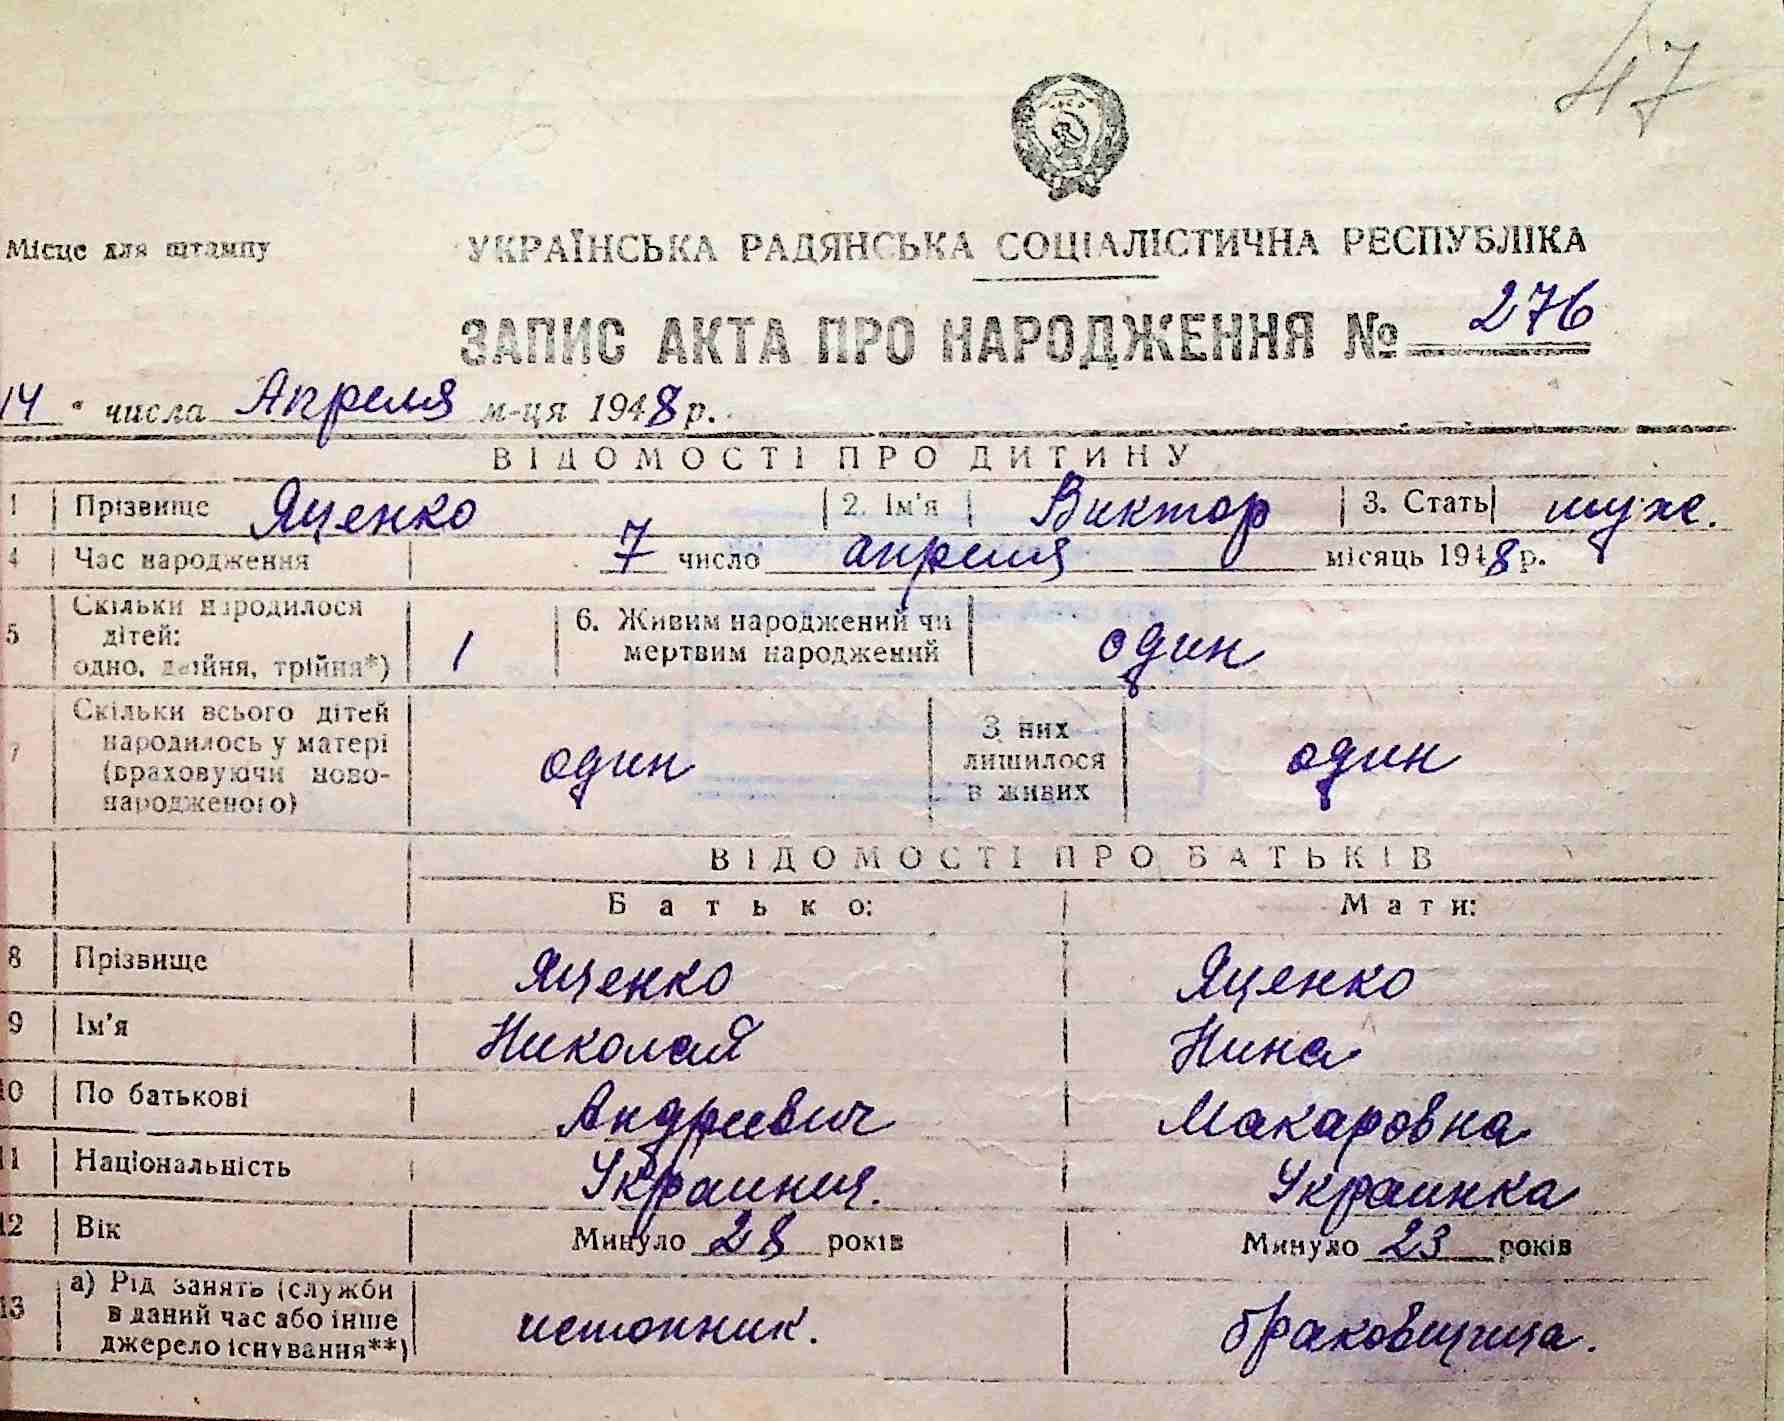 47
Місце для штампу
УКРАЇНСЬКА РАДЯНСЬКА СОЦІАЛІСТИЧНА РЕСПУБЛІКА
ЗАПИС АКТА ПРО НАРОДЖЕННЯ № 276
14 " числа Апреля м-ця 1948 р.
ВІДОМОСТІ ПРО ДИТИНУ
1 Прізвище Яценко 2. Ім'я Виктор 3. Стать муж.
4 Час народження 7 число апреля місяць 1948 р.
5 Скільки народилося дітей: одно, двійня, трійня*) 1 6. Живим народжений чи мертвим народжений один
7 Скільки всього дітей народилось у матері (враховуючи ново-народженого) один З них лишилося в живих один
ВІДОМОСТІ ПРО БАТЬКІВ
Батько: Мати:
8 Прізвище Яценко Яценко
9 Ім'я Николай Нина
10 По батькові Андреевич Макаровна
11 Національність Украинец. Украинка
12 Вік Минуло 28 років Минуло 23 років
13 а) Рід занять (служби в даний час або інше джерело існування**) истопник. браковщица.